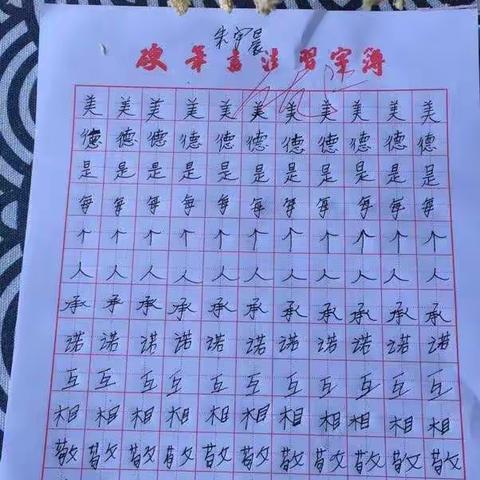 朱宇晨
硬筆書法習字簿
美美美美美美美美美美美
德德德德德德德德德德德
是是是是是是是是是是是
每每每每每每每每每每每
个个个个个个个个个个个
人人人人人人人人人人人
承承承承承承承承承承承
诺诺诺诺诺诺诺诺诺诺诺
互互互互互互互互互互互
相相相相相相相相相相相
敬敬敬敬敬敬敬敬敬敬敬